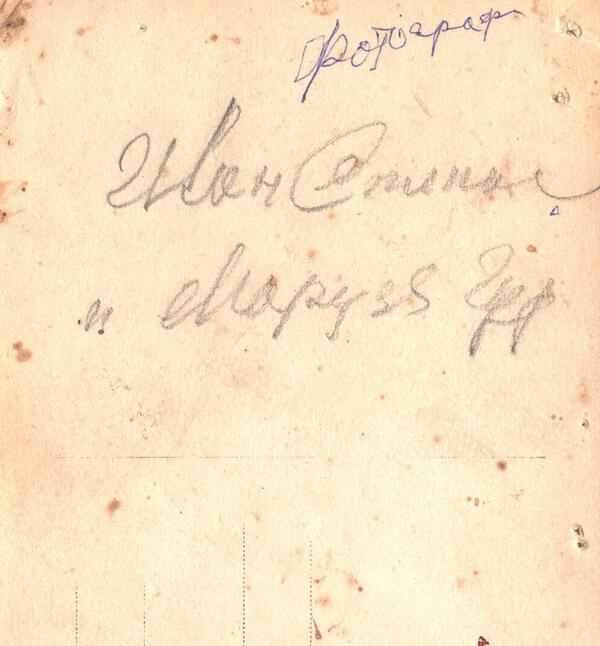 Фотограф
Иван Степан
и Маруся